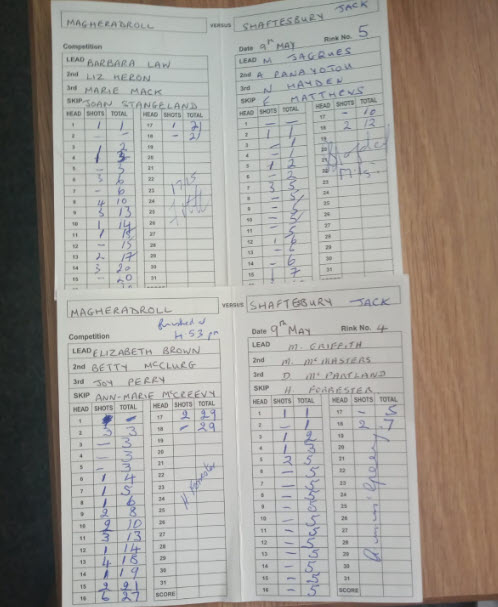 MAGHERADROLL VERSUS SHAFTESBURY JACK
Competition
Date 9th MAY Rink No. 5
LEAD BARBARA LAW
2nd LIZ HERON
3rd MARIE MACK
SKIP JOAN STANGELAND
LEAD M JACQUES
2nd A PANAYOTOU
3rd N HAYDEN
SKIP E MATTHEWS
HEAD SHOTS TOTAL HEAD SHOTS TOTAL
1 1 1 17 1 21
2 - - 18 - 21
3 1 2 19
4 1 3 20
5 - 3 21
6 3 6 22
7 - 6 23
8 4 10 24
9 3 13 25
10 1 14 26
11 1 15 27
12 - 15 28
13 2 17 29
14 3 20 30
15 - 20 31
HEAD SHOTS TOTAL HEAD SHOTS TOTAL
1 - - 17 - 10
2 1 1 18 2 12
3 - 1
4 - 1
5 1 2
6 - 2
7 3 5
8 - 5
9 - 5
10 - 5
11 - 5
12 1 6
13 - 6
14 - 6
15 1 7
MAGHERADROLL VERSUS SHAFTESBURY JACK
Competition finished at 4 53 pm
Date 9th MAY Rink No. 4
LEAD ELIZABETH BROWN
2nd BETTY McCLURG
3rd JOY PERRY
SKIP ANN-MARIE McCREEVY
LEAD M. GRIFFITH
2nd M. McMASTERS
3rd D McPARTLAND
SKIP H. FORRESTER
HEAD SHOTS TOTAL HEAD SHOTS TOTAL
1 - - 17 2 29
2 3 3 18 - 29
3 - 3 19
4 - 3 20
5 - 3 21
6 1 4 22
7 1 5 23
8 1 6 24
9 2 8 25
10 2 10 26
11 3 13 27
12 1 14 28
13 4 18 29
14 1 19 30
15 2 21 31
16 6 27 SCORE
HEAD SHOTS TOTAL HEAD SHOTS TOTAL
1 1 1 17 - 5
2 - 1 18 2 7
3 1 2 19
4 1 3 20
5 2 5 21
6 - 5 22
7 - 5 23
8 - 5 24
9 - 5 25
10 - 5 26
11 - 5 27
12 - 5 28
13 - 5 29
14 - 5 30
15 - 5 31
16 - 5 SCORE